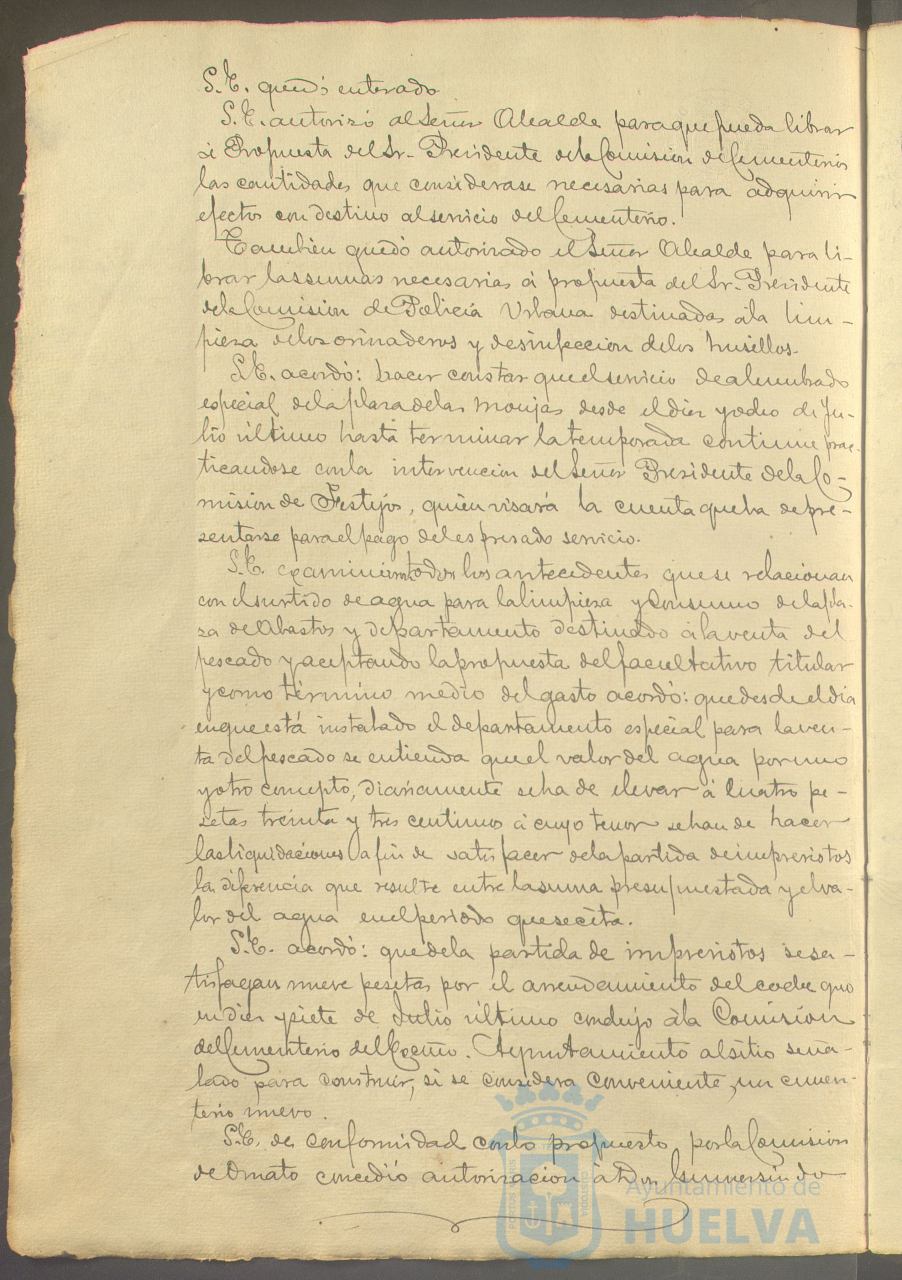 S.E. quedó enterado
S.E. autorizó al Señor Alcalde para que pueda librar
á Propuesta del Sr. Presidente dela Comision de Cementerios
las cantidades que considerase necesarias para adquirir
efectos con destino al servicio del Cementerio.
Tambien quedó autorizado el Señor Alcalde para li-
brar las sumas necesarias á propuesta del Sr. Presidente
dela Comision de Policía Urbana destinadas á la lim-
pieza delos orinaderos y desinfeccion delos husillos.
S.E. acordó: hacer constar que el servicio de alumbrado
especial dela plaza delas Monjas desde el diez y ocho de Ju-
lio último hasta terminar la temporada continue prac-
ticandose con la intervencion del Señor Presidente dela Co-
mision de Festejos, quien visará la cuenta que ha de pre-
sentarse para el pago del espresado servicio.
S.E. los antecedentes que se relacionan
con el surtido de agua para la limpieza y consumo dela pla-
za de Abastos y departamento destinado á la venta del
pescado y aceptando la propuesta del facultativo titular
y como término medio del gasto acordó: que desde el dia
en que está instalado el departamento especial para la ven-
ta del pescado se entienda que el valor del agua por uno
y otro concepto, diariamente se ha de elevar á cuatro pe-
setas treinta y tres centimos á cuyo tenor se han de hacer
las liquidaciones a fin de satisfacer dela partida de imprevistos
la diferencia que resulte entre la suma presupuestada y el va-
lor del agua en el periodo que se cita.
S.E. acordó: que dela partida de imprevistos se sa-
tisfagan nueve pesetas por el arrendamiento del coche que
en diez y siete de Julio último condujo á la Comision
del Cementerio del Excmo. Ayuntamiento al sitio seña-
lado para construir, si se considera conveniente, un cemen-
terio nuevo.
S.E. de conformidad con lo propuesto por la Comision
de Ornato concedió autorizacion á Don Gumersindo
Ayuntamiento de
HUELVA